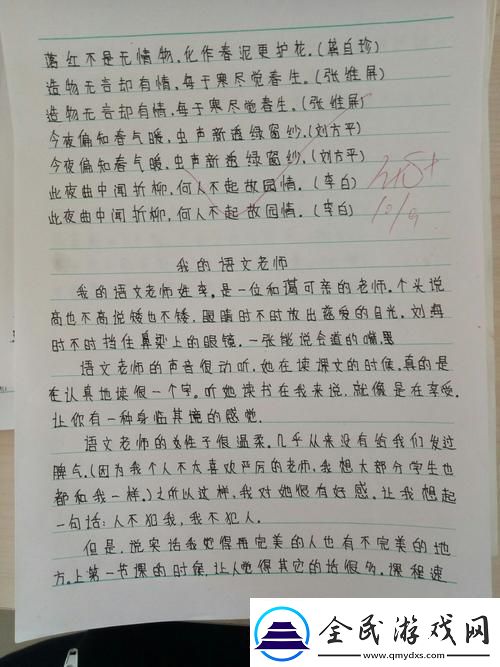 落红不是无情物,化作春泥更护花.(龚自珍)
造物无言却有情,每于寒尽觉春生.(张维屏)
造物无言却有情,每于寒尽觉春生.(张维屏)
今夜偏知春气暖,虫声新透绿窗纱.(刘方平)
今夜偏知春气暖,虫声新透绿窗纱.(刘方平)
此夜曲中闻折柳,何人不起故园情.(李白)
此夜曲中闻折柳,何人不起故园情.(李白)
我的语文老师
我的语文老师姓李.是一位和蔼可亲的老师.个头说
高也不高说矮也不矮,眼睛时不时放出慈爱的目光.刘海
时不时挡住鼻梁上的眼镜.一张能说会道的嘴巴
语文老师的声音很动听,她在读课文的时候,真的是
在认真地读很一个字.听她读书在我来说,就像是在享受.
让你有一种身临其境的感觉.
语文老师的性子很温柔.几乎从来没有给我们发过
脾气.(因为我个人不太喜欢严厉的老师,我想大部分学生也
都和我一样.)之所以这样,我对她很有好感.让我想起
一句话:人不犯我,我不犯人.
但是,说实话我觉得再完美的人也有不完美的地
方.上第一节课的时候,让人觉得其它的话很多.课程速
全民游戏网
www.qmydxs.com